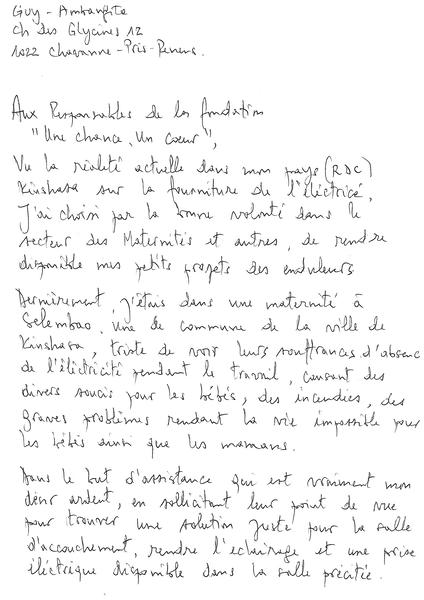 Guy - Ambangite
Ch des Glycines 12
1022 Chavanne-Près-Renens.
Aux Responsables de la fondation
"Une chance, Un Cœur",
Vu la réalité actuelle dans mon pays (RDC)
Kinshasa sur la fourniture de l'électricé,
J'ai choisi par la bonne volonté dans le
secteur des Maternités et autres, de rendre
disponible mes petits projets des onduleurs
Dernièrement j'étais dans une maternité à
Selembao, une de commune de la ville de
Kinshasa, triste de voir leurs souffrances d'absence
de l'électricité pendant le travail, causant des
divers soucis pour les bébés, des incendies, des
graves problèmes rendant la vie impossible pour
les bébés ainsi que les mamans.
Dans le but d'assistance qui est vraiment mon
désir ardent, en sollicitant leur point de vue
pour trouver une solution juste pour la salle
d'accouchement, rendre l'eclairage et une prise
électrique disponible dans la salle précitée.